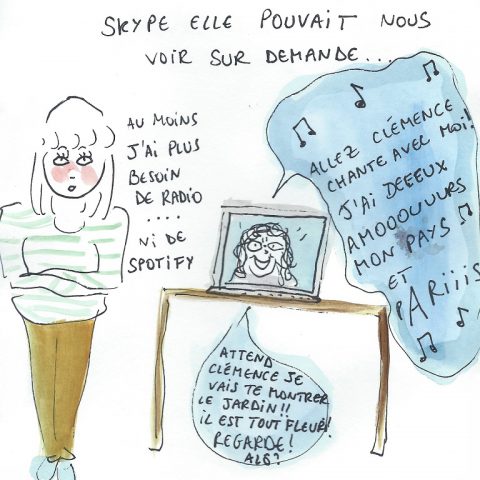 SKYPE ELLE POUVAIT NOUS
VOIR SUR DEMANDE...
AU MOINS
J'AI PLUS
BESOIN
DE RADIO
....
NI DE
SPOTIFY
ALLEZ CLÉMENCE
CHANTE AVEC MOI!
J'AI DEEEUX
AMOOOUUURS
MON PAYS
ET
PARIIIS
ATTEND
CLÉMENCE JE
VAIS TE MONTRER
LE JARDIN!!
IL EST TOUT FLEURI!
REGARDE!
ALO?